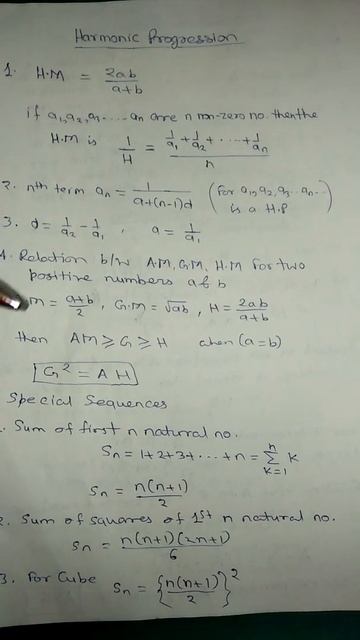 Harmonic Progression
1. H.M = 2ab/a+b
if a₁,a₂,a₃.....aₙ are n non-zero no. then the
H.M is 1/H = (1/a₁ + 1/a₂ + ... + 1/aₙ)/n
2. nth term aₙ = 1/a+(n-1)d (for a₁,a₂,a₃..aₙ.. is a H.P)
3. d = 1/a₂ - 1/a₁, a = 1/a₁
4. Relation b/w A.M, G.M, H.M for two
positive numbers a & b
M = a+b/2, G.M = √ab, H = 2ab/a+b
then AM ≥ G ≥ H when (a=b)
G² = A H
Special Sequences
. Sum of first n natural no.
Sₙ = 1+2+3+...+n = Σⁿₖ₌₁ k
Sₙ = n(n+1)/2
2. Sum of squares of 1st n natural no.
Sₙ = n(n+1)(2n+1)/6
3. For Cube Sₙ = {n(n+1)/2}²